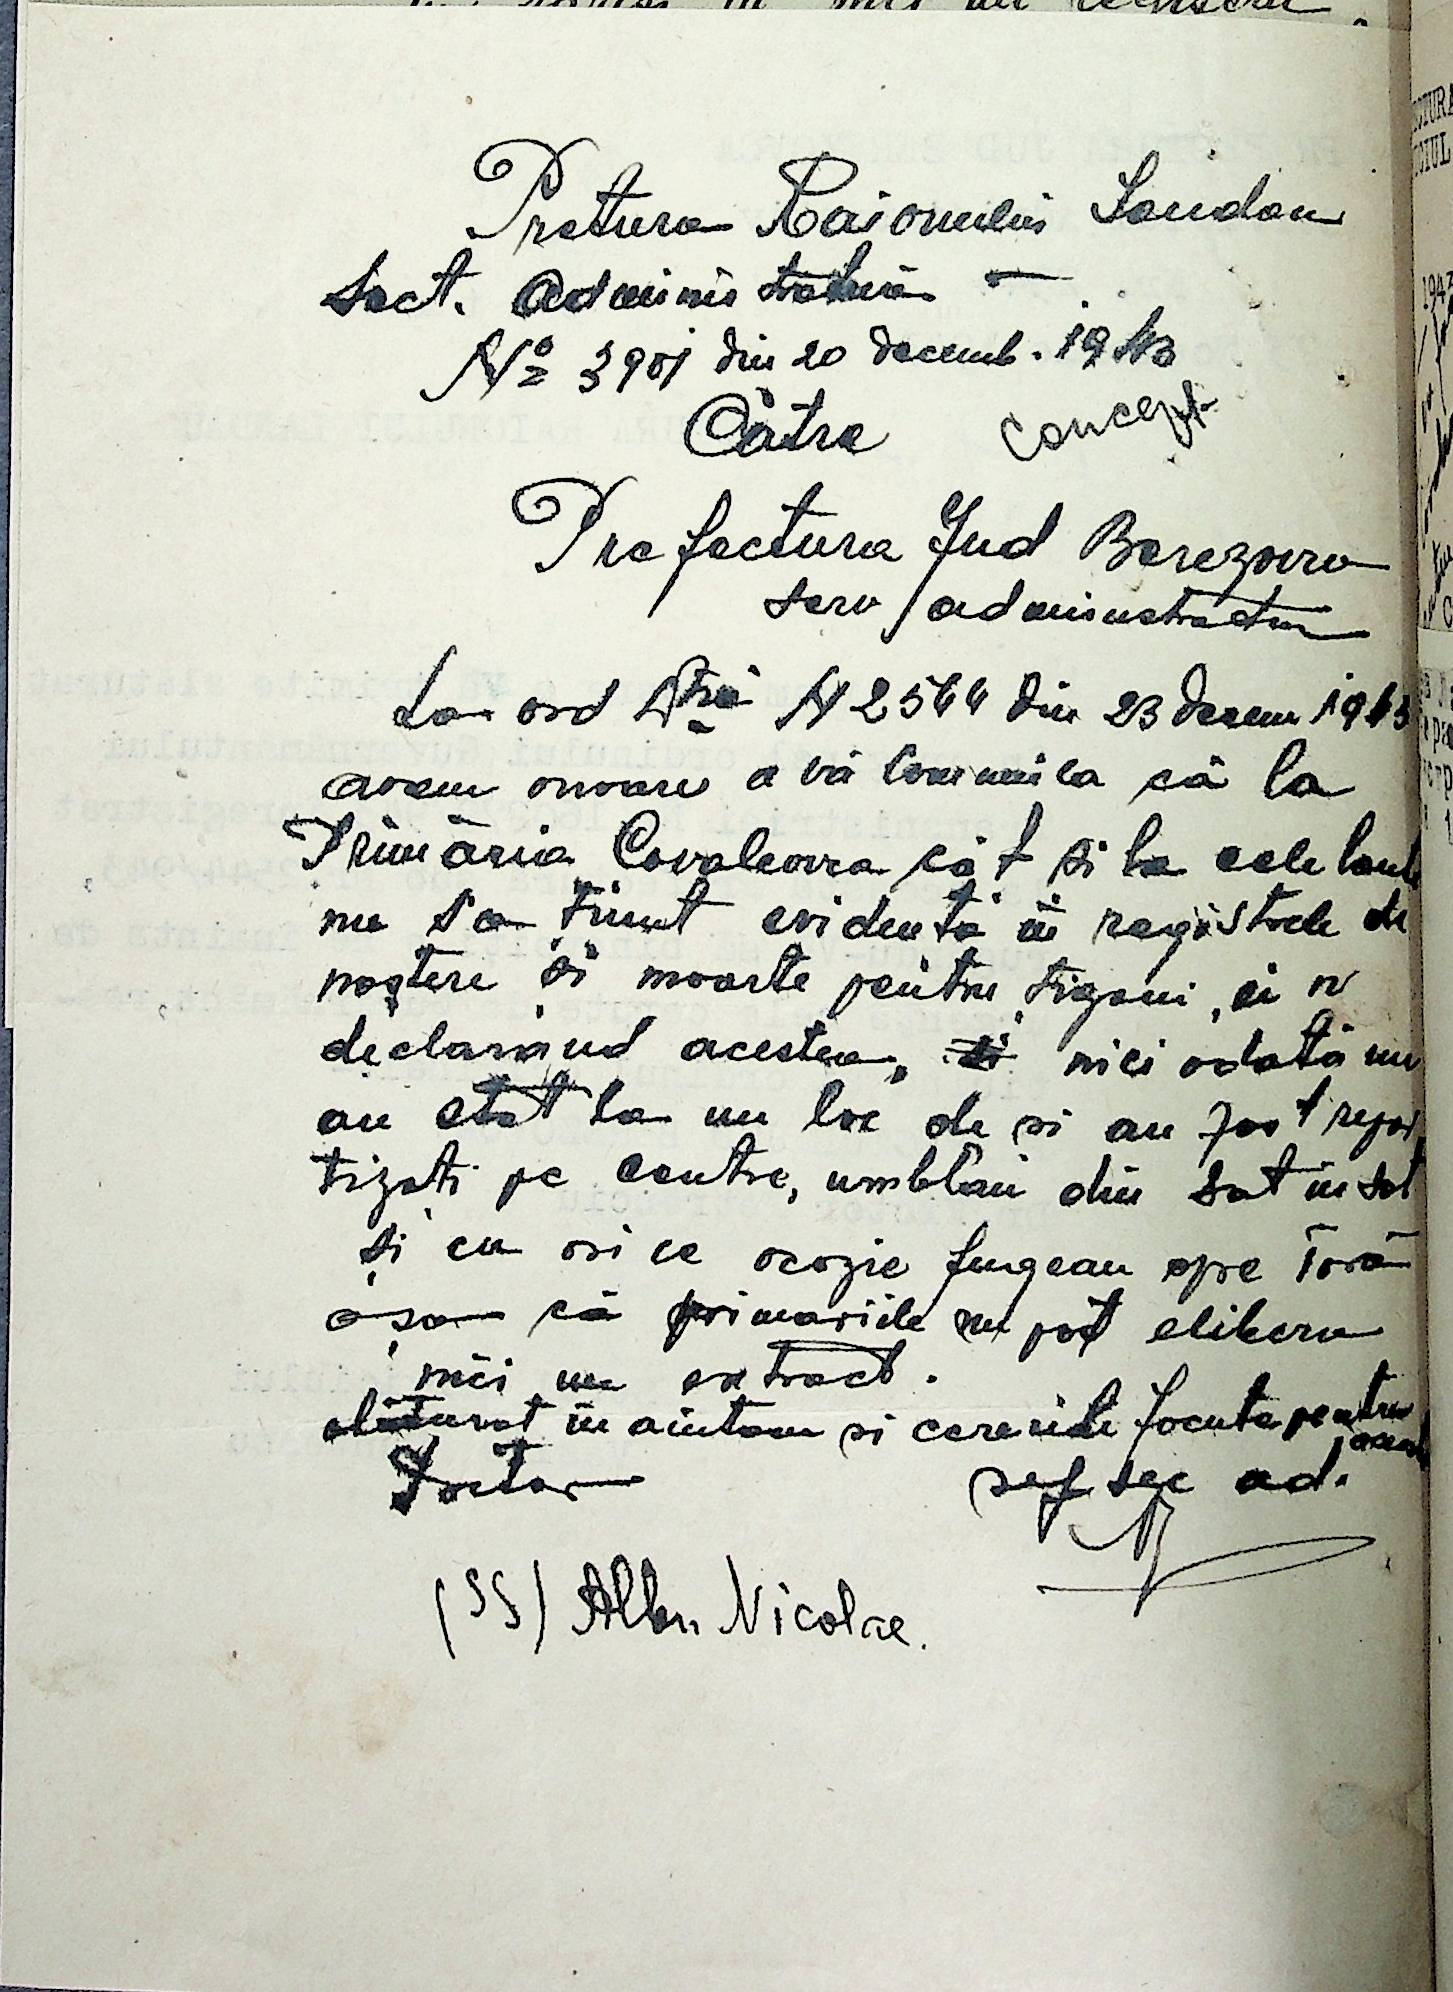 Pretura Raionului Landau
Sect. Administrativă
Nº 3901 din 20 decemb. 1943
Către concept
Prefectura Jud Berezovca
serv administrativ
La ord Dtră N 2544 din 23 decem 1943
avem onoare a vă comunica că la
Primăria Covaleovca cât și la celelante
nu sa ținut evidență în registrele de
naștere și moarte pentru țigani, ei ne
declarând acestea, nici odată nu
au stat la un loc de si au fost repar
tizati pe centre, umblau din sat in sat
și cu ori ce ocazie fugeau spre țară
așa că primariile nu pot elibera
nici un extract.
alăturat înaintam si cererile facute pentru
Pretor sef sec ad.
(SS) Albu Nicolae.